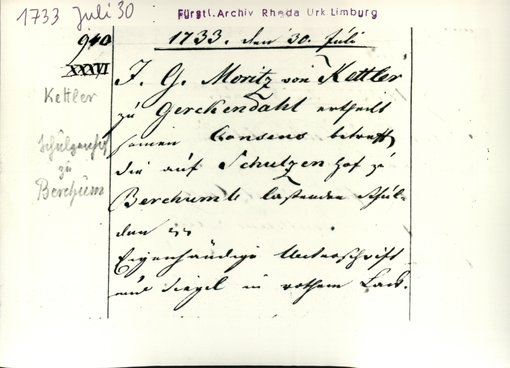 1733 Juli 30
Fürstl. Archiv Rheda Urk. Limburg
940
XXXVI
Kettler
Schulzenhof
zu
Berchum
1733. den 30. Juli
F. G. Moritz von Kettler
zu Gerckendahl ertheilt
seinen Consens betreff
die auf Schulzen Hof zu
Berchum lastenden Schul-
den
Eigenhändige Unterschrift
und Siegel in rothem Lack.